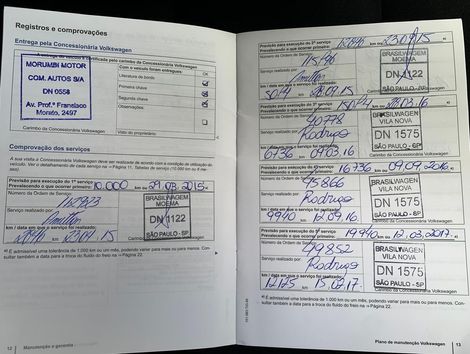 Registros e comprovações
Entrega pela Concessionária Volkswagen
Com o veículo foram entregues:
OK
Literatura de bordo
Primeira chave
Segunda chave
Observações:
MORUMBI MOTOR
COM. AUTOS S/A
DN 0558
Av. Prof.º Francisco
Morato, 2497
Carimbo da Concessionária Volkswagen
Visto do proprietário:
Comprovação dos serviços
A sua visita à Concessionária Volkswagen deve ser realizada de acordo com a condição de utilização do
veículo. Ver o detalhamento de cada serviço na ⇒ Página 11, Tabelas de serviço (10.000 km ou 6 me-
ses).
Previsão para execução do 1º serviço
Prevalecendo o que ocorrer primeiro: 10.000 km ou 29.03.2015
Número da Ordem de Serviço:
Serviço realizado por:
km / data em que o serviço foi realizado:
BRASILWAGEN
MOEMA
DN 1122
SÃO PAULO - SP
Carimbo da Concessionária Volkswagen
a) É admissível uma tolerância de 1.000 km ou um mês, podendo variar para mais ou para menos. Con-
sultar também a data para a troca do fluido do freio na ⇒ Página 22.
12 Manutenção e garantia
Previsão para execução do 2º serviço
Prevalecendo o que ocorrer primeiro: km ou 23.09.15
Número da Ordem de Serviço:
115196
Serviço realizado por:
km / data em que o serviço foi realizado:
BRASILWAGEN
MOEMA
DN 1122
SÃO PAULO - SP
Previsão para execução do 3º serviço
Prevalecendo o que ocorrer primeiro:
Número da Ordem de Serviço:
40778
Serviço realizado por:
Rodrigo
6736 09.03.16
BRASILWAGEN
VILA NOVA
DN 1575
SÃO PAULO - SP
Carimbo da Concessionária Volkswagen
16736 km ou 09.09.2016
Número da Ordem de Serviço:
45866
Serviço realizado por:
Rodrigo
9940 12.09.16
BRASILWAGEN
VILA NOVA
DN 1575
SÃO PAULO - SP
Carimbo da Concessionária Volkswagen
Previsão para execução do 5º serviço
Prevalecendo o que ocorrer primeiro: 19940 km ou 12.03.2017
Número da Ordem de Serviço:
49852
Serviço realizado por:
Rodrigo
km / data em que o serviço foi realizado:
12125 15.02.17
BRASILWAGEN
VILA NOVA
DN 1575
SÃO PAULO - SP
Carimbo da Concessionária Volkswagen
a) É admissível uma tolerância de 1.000 km ou um mês, podendo variar para mais ou para menos. Con-
sultar também a data para a troca do fluido do freio na ⇒ Página 22.
Plano de manutenção Volkswagen 13